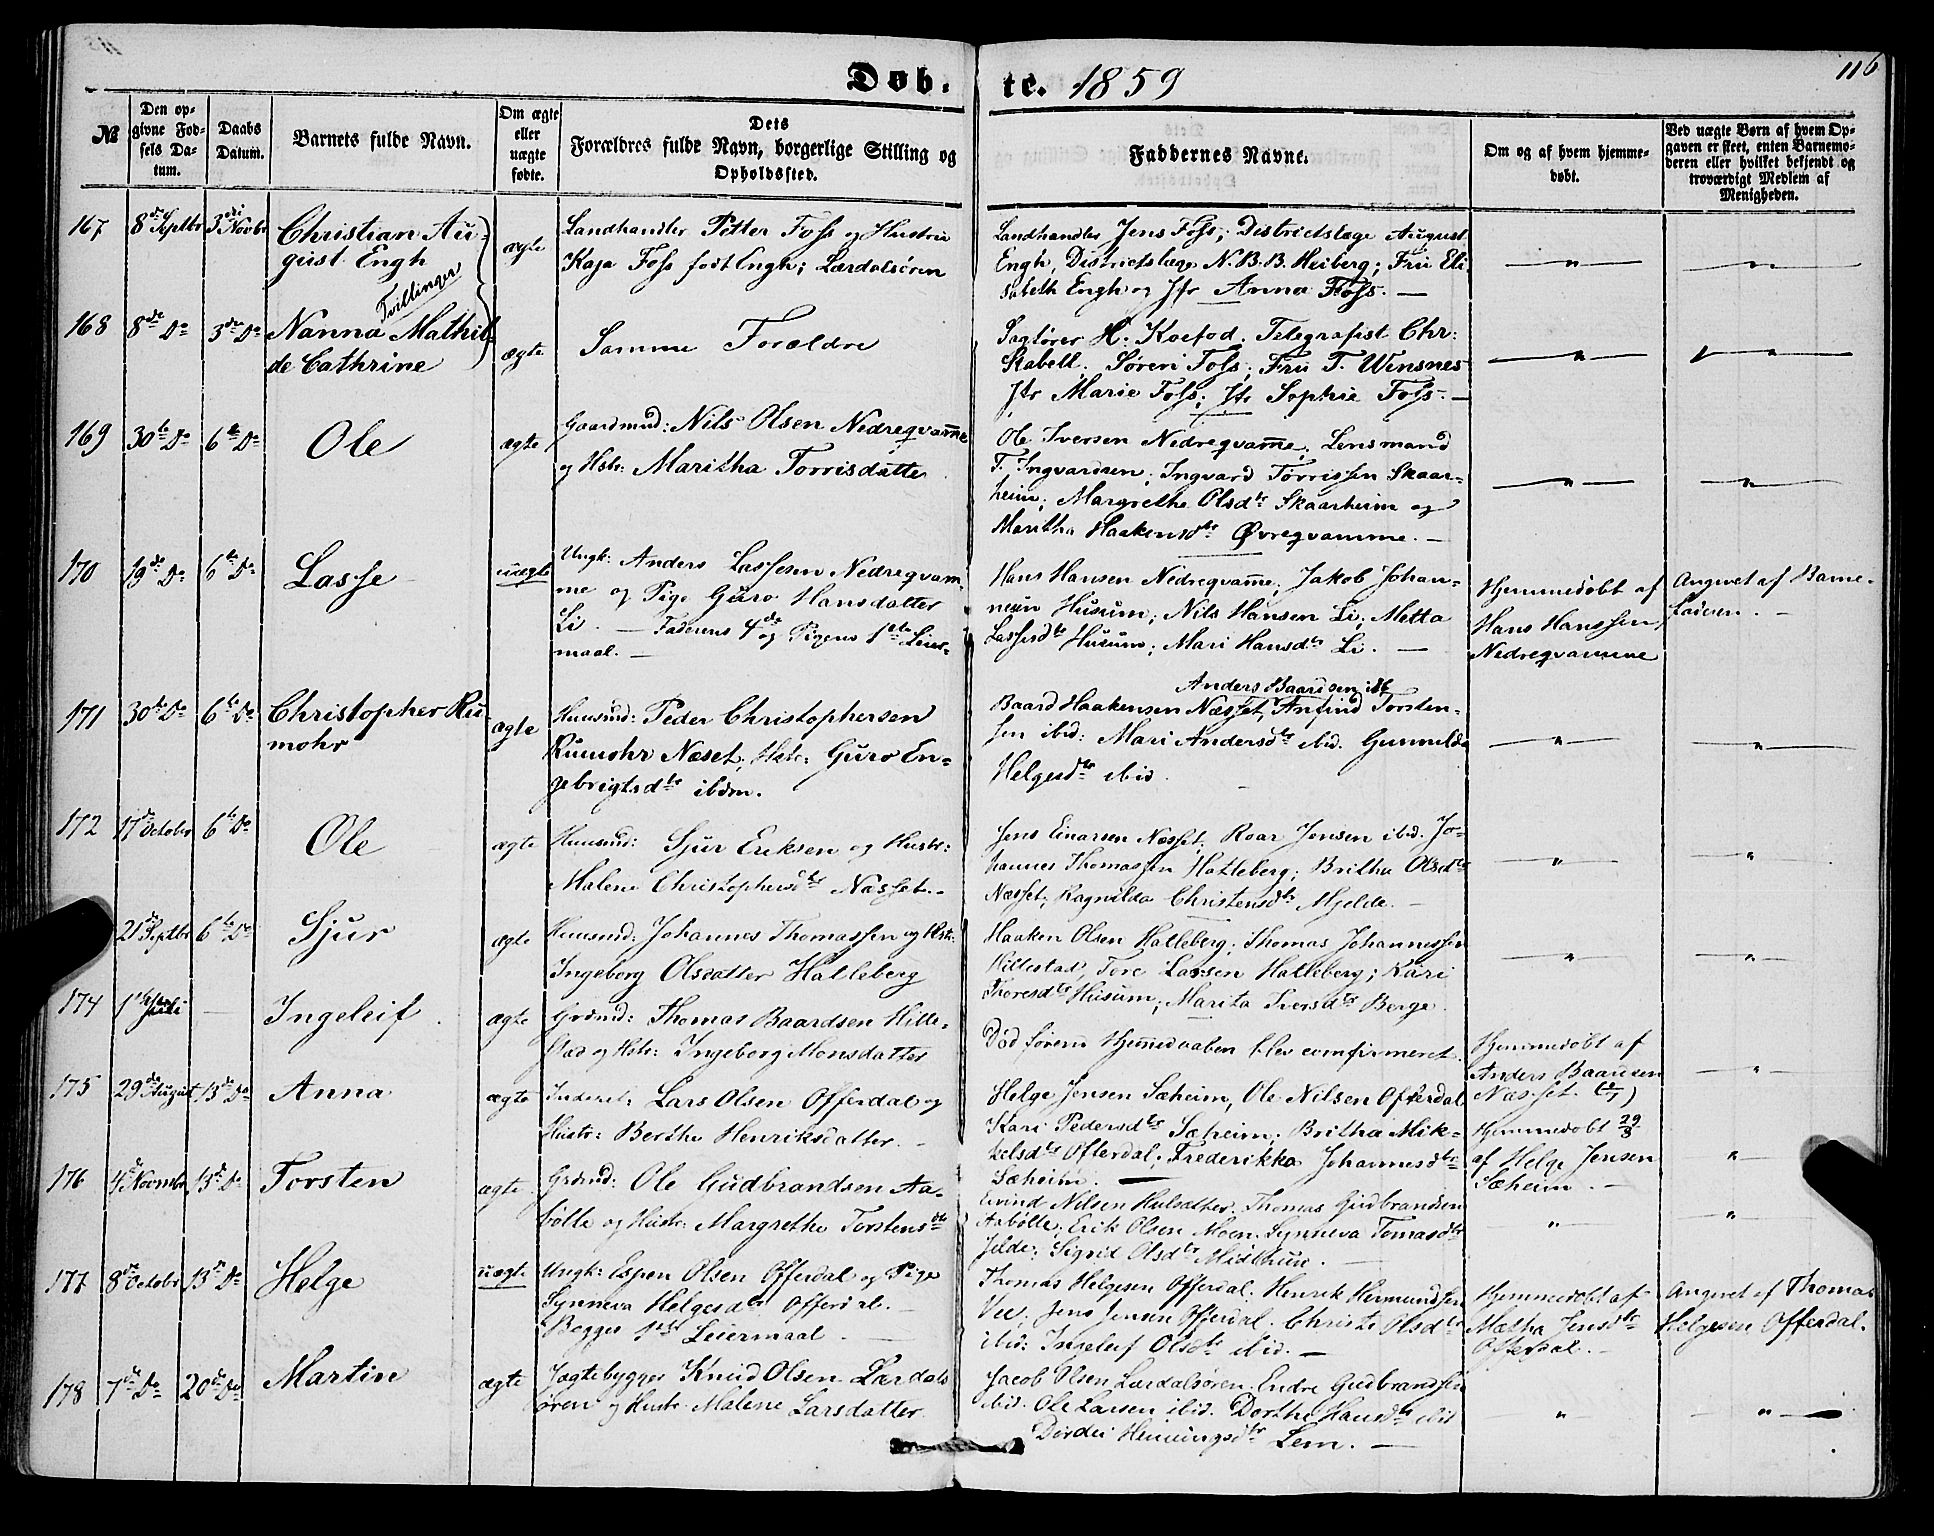 116
Døb- te. 1859
№
Den op-
givne Fød-
sels Da-
tum.
Daabs
Datum.
Barnets fulde Navn.
Om ægte
eller
uægte
fødte.
Dets
Forældres fulde Navn, borgerlige Stilling og
Opholdssted.
Faddernes Navne.
Om og af hvem hjemme-
døbt.
Ved uægte Børn af hvem Op-
gaven er skeet, enten Barnemo-
deren eller hvilket bekjendt og
troværdigt Medlem af
Menigheden.
167 8de Septbr 3die Novbr
Christian Au-
gust Engh
Tvillinger
ægte
Landhandler Petter Foss og Hustru
Kaja Foss født Engh; Lærdalsøren
Landhandler Jens Foss; Districtslæge August
Engh, Districtslæge N. B. B. Heiberg; Fru Eli
sabeth Engh og Jfr Anna Foss. —
— " — — " —
168 8de Do 3die Do
Nanna Mathil
de Cathrine
ægte
Samme Forældre
Sagfører H. Koefod. Telegrafist Chr:
Stabell. Søren Foss; Fru T. Wensnes
Jfr Marie Foss; Jfr Sophie Foss. —
— " — — " —
169 30te Do 6te Do
Ole
ægte
Gaardmd: Nils Olsen Nedreqvam̅e
og Hstr: Maritha Torrisdatter
Ole Iversen Nedreqvam̅e; Lensmand
T. Ingvardsen; Ingvard Torrissen Skaar-
heim; Margrethe Olsdtr Skaarheim og
Maritha Haakensdtr Øvreqvamme. —
— " — — " —
170 19de Do 6te Do
Lasse
uægte
Ungk: Anders Lassesen Nedreqvam
me og Pige Guro Hansdatter
Li. — Faderens 4de og Pigens 1ste Leier-
maal. —
Hans Hansen Nedreqvam̅e; Jakob Johan-
nesen Husum; Nils Hansen Li; Metta
Lassesdtr Husum; Mari Hansdtr Li. —
Hjemmedøbt af
Hans Hanssen
Nedreqvamme
Angivet af Barne-
faderen. —
171 30te Do 6te Do
Christopher Ru
mohr
ægte
Huusmd: Peder Christophersen
Rumohr Næset; Hstr: Guro En-
gebrigtsdtr ibdm.
Anders Baardsen ibd
Baard Haakensen Næsset, Anfind Torsten-
sen ibid: Mari Andersdtr ibid. Gunnilda
Helgesdtr ibid.
— " — — " —
172 17de October 6te Do
Ole
ægte
Huusmd: Sjur Eriksen og Hustr:
Malene Christophersdtr Næsset. -
Jens Einarsen Næsset. Roar Jensen ibid. Jo-
hannes Thomassen Hatleberg; Britha Olsdtr
Næsset; Ragnilda Christensdtr Mjelde. —
— " — — " —
21de Septbr 6te Do
Sjur
ægte
Huusmd: Johannes Thomassen og Hstr:
Ingeborg Olsdatter Hatleberg
Haaken Olsen Hatleberg. Thomas Johannessen
Hillestad, Tore Larsen Hatleberg; Kari
Thoresdtr Husum; Marita Iversdtr Berge.
— " — — " —
174 1ste Juli —
Ingeleif
ægte
Grdmd: Thomas Baardsen Hille-
stad og Hstr: Ingeborg Monsdatter
Død førend Hjemmedaaben blev comfirmeret.
Hjemmedøbt af
Anders Baardsen
Næsset.
— " —
175 29de August 13de Do
Anna
ægte
Inderst: Lars Olsen Offerdal og
Hustr: Berthe Henriksdatter. —
Helge Jensen Sæheim, Ole Nilsen Offerdal
Kari Pedersdtr Sæheim; Britha Mik-
kelsdtr Offerdal; Frederikka Johannesdtr
Sæheim. —
Hjemmedøbt 29/8
af Helge Jensen
Sæheim. —
"
176 4de Novmbr 13de Do
Torsten
ægte
Grdmd: Ole Gudbrandsen Aa-
bølle og Hustr: Margrethe Torstensdtr
Eivind Nilsen Hulsather. Thomas Gudbrandsen
Aabølle; Erik Olsen Moen. Synneva Tomasdtr
Jelde; Sigrid Olsdtr Midthun. —
" — "
177 8de October 13de Do
Helge
uægte
Ungk: Espen Olsen Offerdal og Pige
Synneva Helgesdtr Offerdal. —
Begges 1ste Leiermaal —
Thomas Helgesen Offerdal. Henrik Hermundsen
Vee; Jens Jensen Offerdal. Christi Olsdtr
ibid: Ingeleif Olsdtr ibid. —
Hjemmedøbt af
Mætha Jensdtr
Offerdal. —
Angivet af Thomas
Helgesen Offerdal.
178 7de Do 20de Do
Martin
ægte
Jægtebygger Knud Olsen Lærdals
øren og Hustr. Malene Larsdatter
Jacob Olsen Lærdalsøren. Endre Gudbrandsen
ibid. Ole Larsen ibid. Dorthe Hansdtr ibid
Dordei Henningsdtr Lem. —
— " — — " —